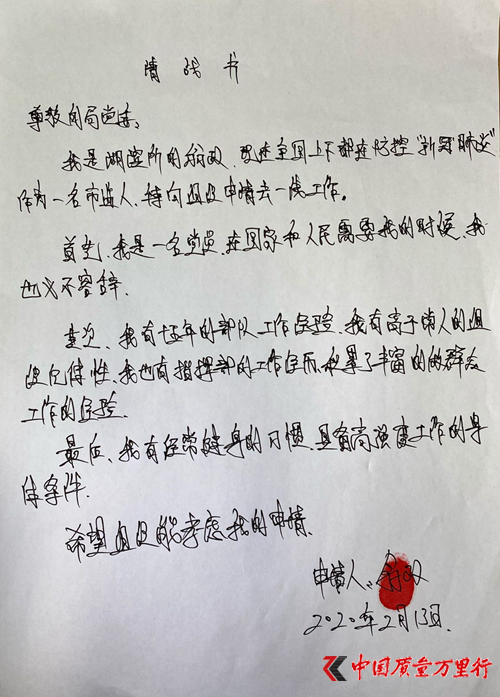 请战书
尊敬的局党委:
我是湖滨所的翁政,現在全国上下都在防控“新冠肺炎”
作为一名市监人,特向组织申请去一线工作。
首先,我是一名党员,在国家和人民需要我的时候,我
也义不容辞.
其次、我有十五年的部队工作经验,我有高于常人的组
织纪律性、我也有指挥部的工作经历,积累了丰富的的群众
工作的经验.
最后、我有经常健身的习惯,具备高强度工作的身
体条件.
希望组织能考虑我的申请.
申请人:
2020年2月13日.
中国质量万里行